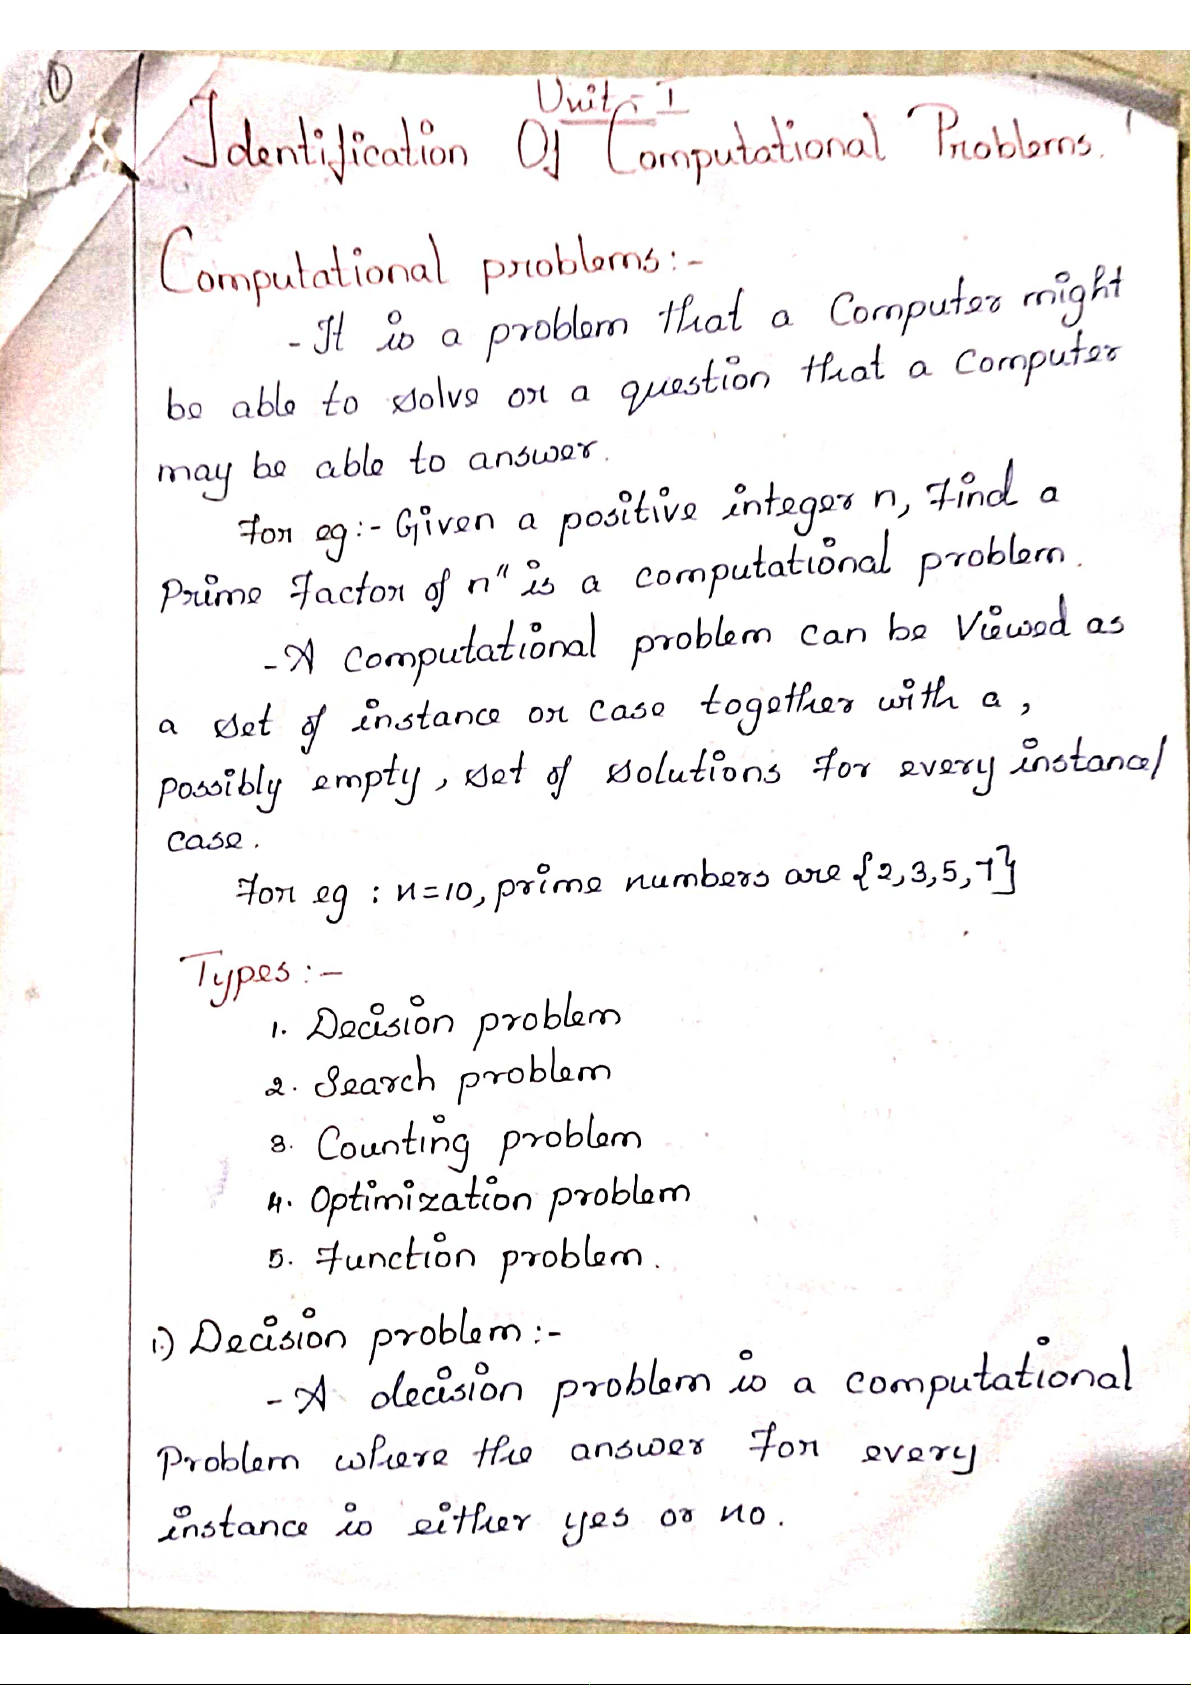 1
Unit - I
Identification Of Computational Problems.
Computational problems:-
- It is a problem that a Computer might
be able to solve or a question that a computer
may be able to answer.
For eg:- Given a positive integer n, Find a
Prime Factor of n" is a computational problem.
- A computational problem can be Viewed as
a set of instance or case together with a,
possibly empty, set of solutions for every instance/
case.
For eg : n=10, prime numbers are {2,3,5,7}
Types:-
1. Decision problem
2. Search problem
3. Counting problem
4. Optimization problem
5. Function problem.
1.) Decision problem:-
- A decision problem is a computational
Problem where the answer For every
instance is either yes or no.